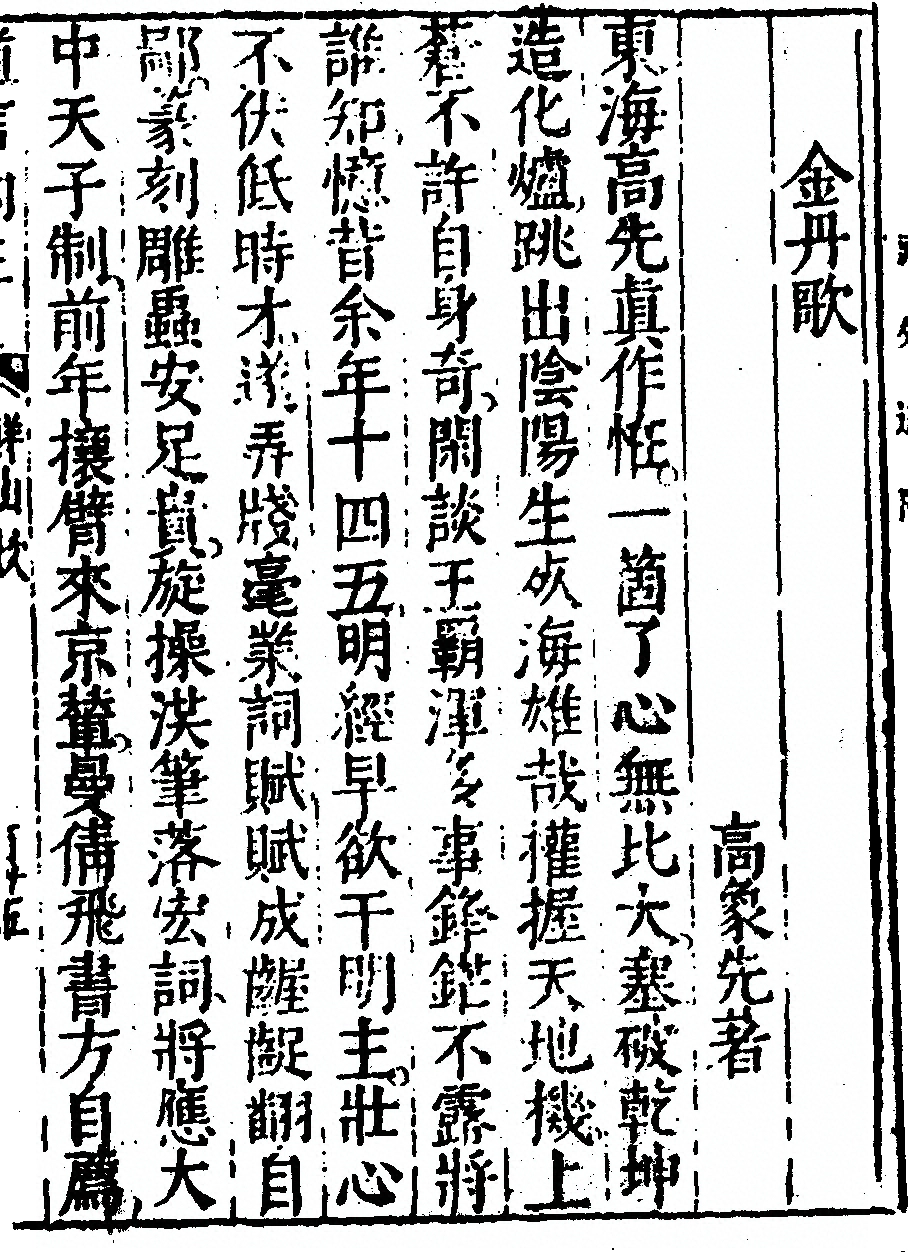 金丹歌
高象先著
東海高先眞作怪一箇了心無比大塞破乾坤
造化爐跳出陰陽生死海雄哉權握天地機上
蒼不許自身奇閑談王覇渾多事鋒鋩不露將
誰知憶昔余年十四五明經早欲干明主壯心
不伏低時才遂弄牋毫業詞賦賦成齷齪翻自
鄙篆刻雕蟲安足貴旋操洪筆落宏詞將應大
中天子制前年攘臂來京輦曼倩飛書方自薦